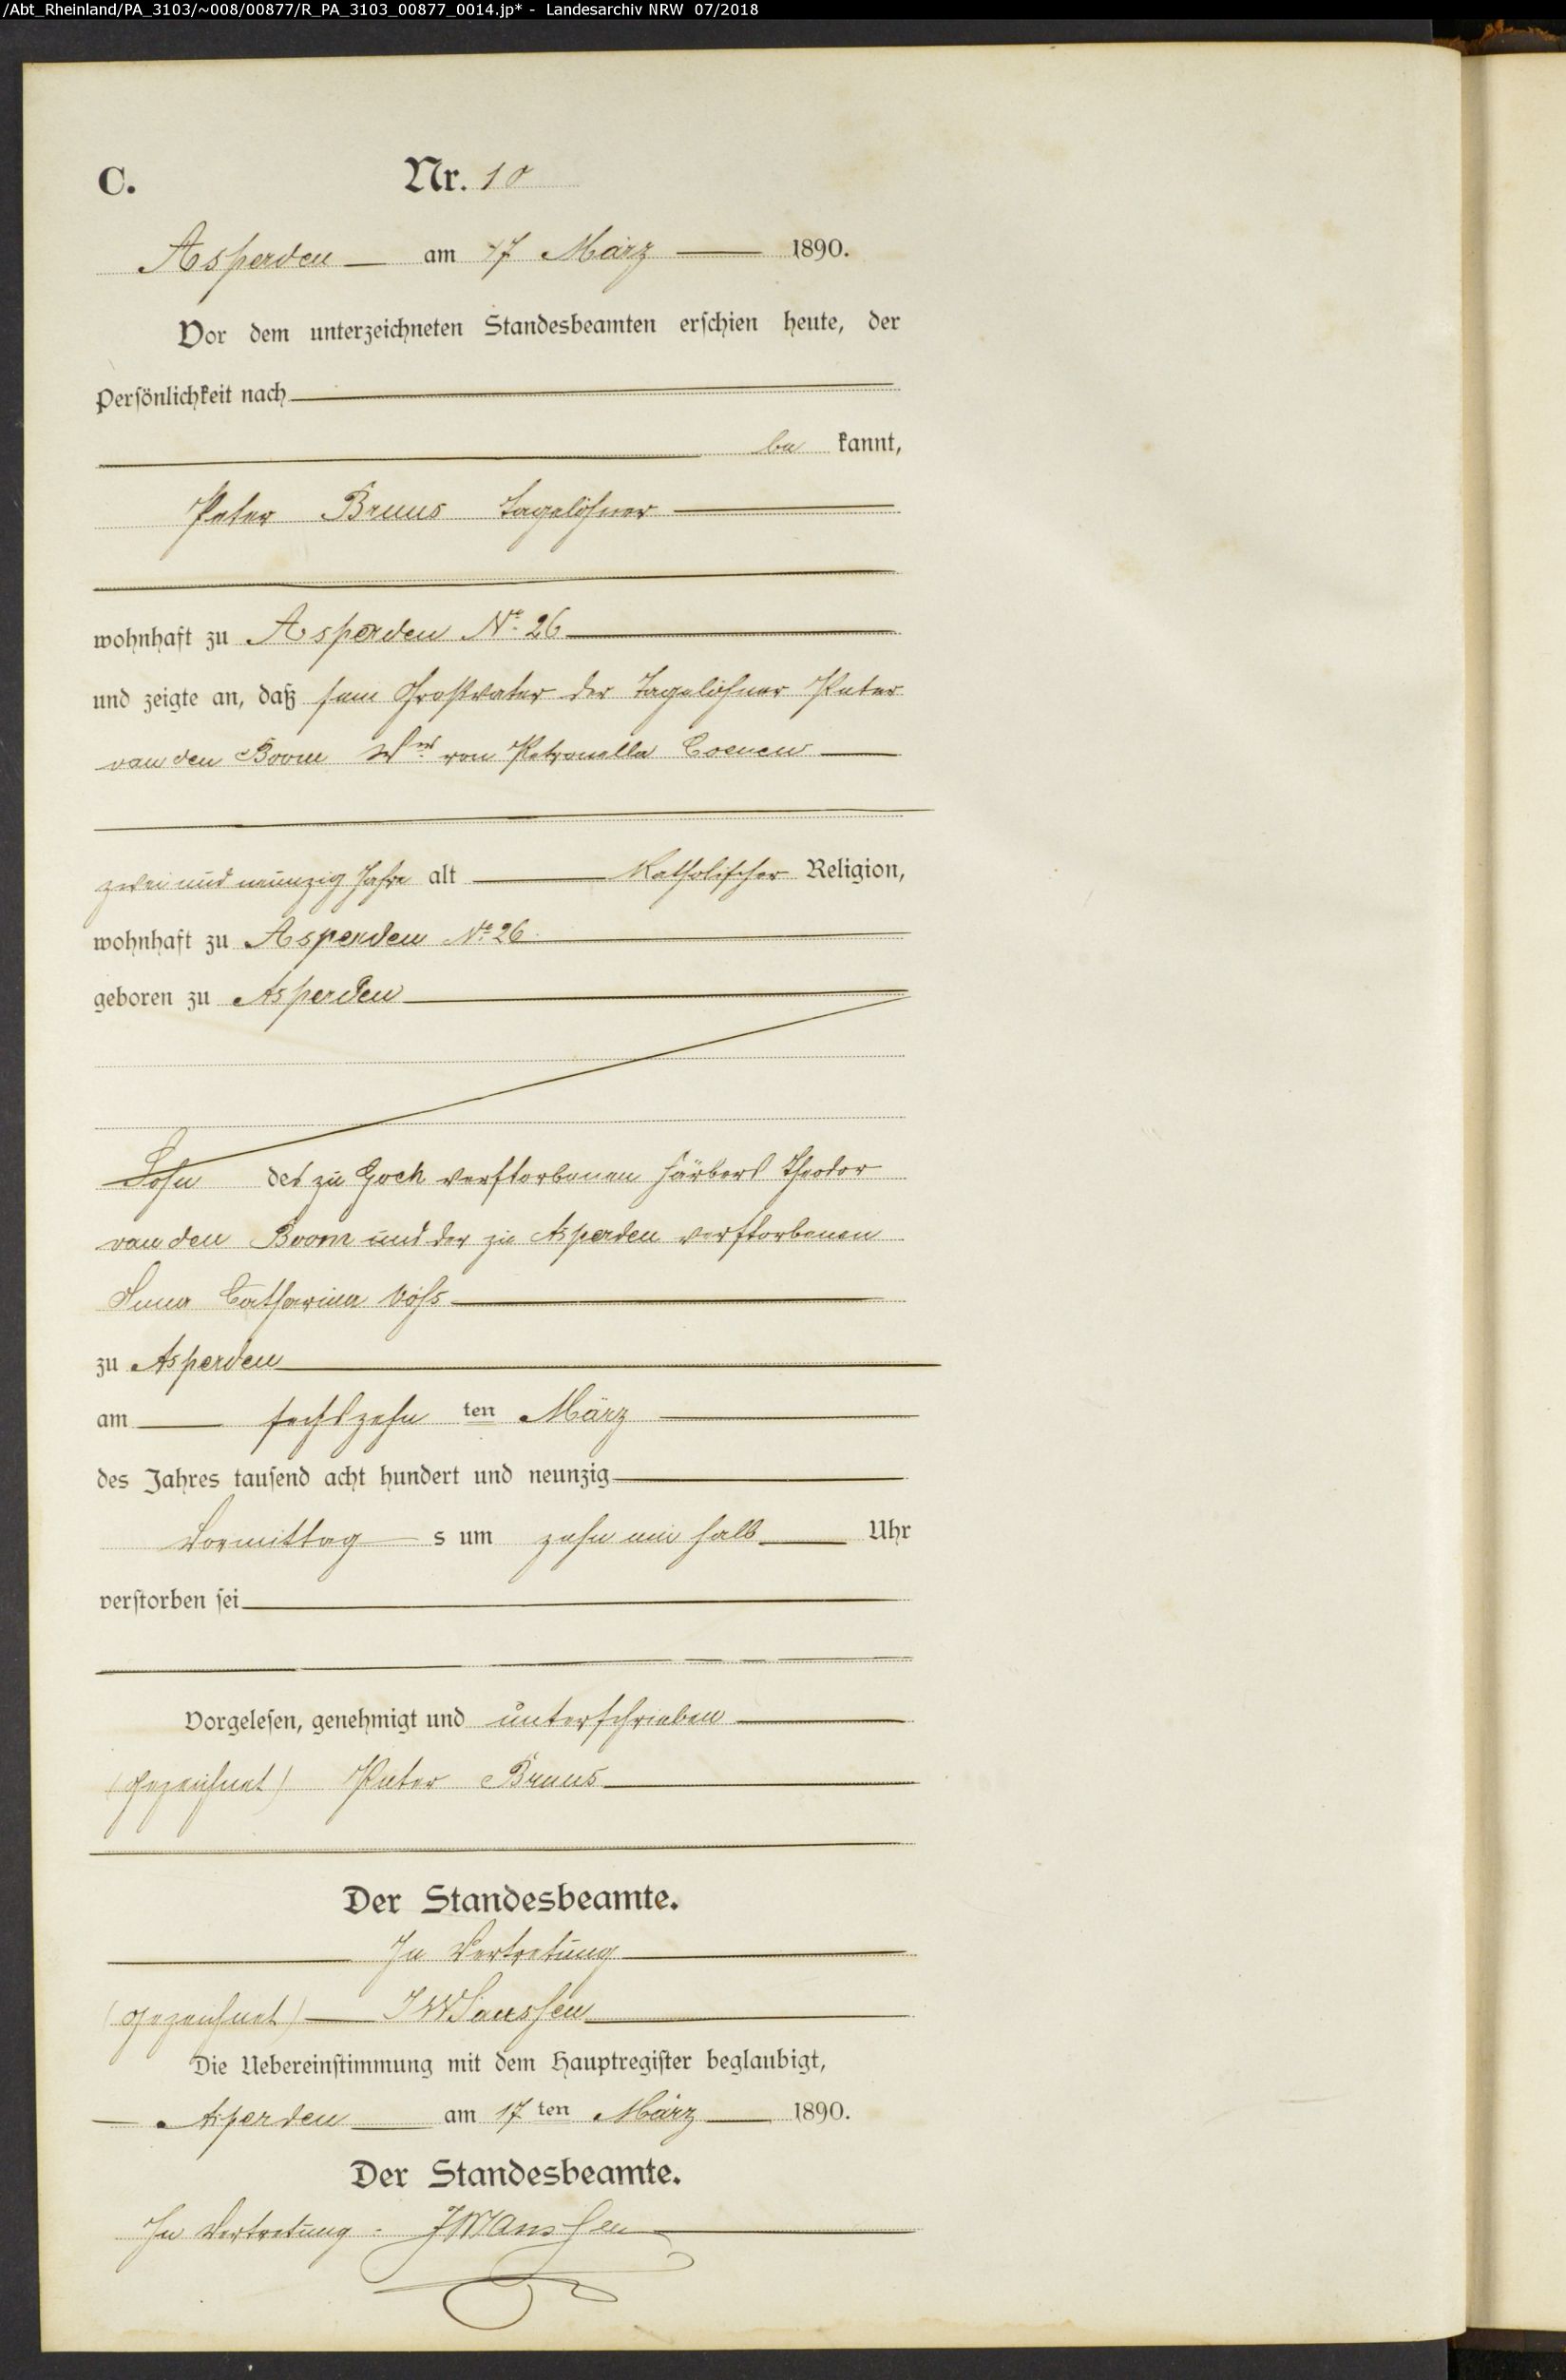 /Abt_Rheinland/PA_3103/~008/00877/R_PA_3103_00877_0014.jp* - Landesarchiv NRW 07/2018
C. Nr. 10
Asperden am 17 März 1890.
Vor dem unterzeichneten Standesbeamten erschien heute, der
Persönlichkeit nach
be kannt,
Peter Bruns Tagelöhner
wohnhaft zu Asperden No. 26
und zeigte an, daß sein Großvater der Tagelöhner Peter
van den Boom Wwr von Petronella Coenen
zwei und neunzig Jahre alt Katholischer Religion,
wohnhaft zu Asperden No. 26
geboren zu Asperden
Sohn des zu Goch verstorbenen Färbers Theodor
van den Boom und der zu Asperden verstorbenen
Anna Catharina Vöss
zu Asperden
am sechszehn ten März
des Jahres tausend acht hundert und neunzig
Vormittag s um zehn ein halb Uhr
verstorben sei
Vorgelesen, genehmigt und unterschrieben
(gezeichnet) Peter Bruns
Der Standesbeamte.
In Vertretung
(gezeichnet) JW Janssen
Die Uebereinstimmung mit dem Hauptregister beglaubigt,
Asperden am 17 ten März 1890.
Der Standesbeamte.
In Vertretung. JWJanssen